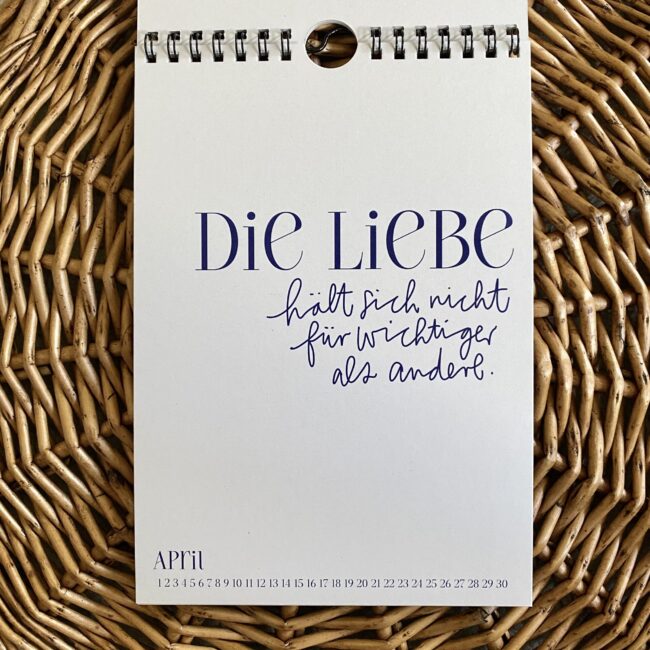 Die Liebe
hält sich nicht
für wichtiger
als andere.
April
1 2 3 4 5 6 7 8 9 10 11 12 13 14 15 16 17 18 19 20 21 22 23 24 25 26 27 28 29 30